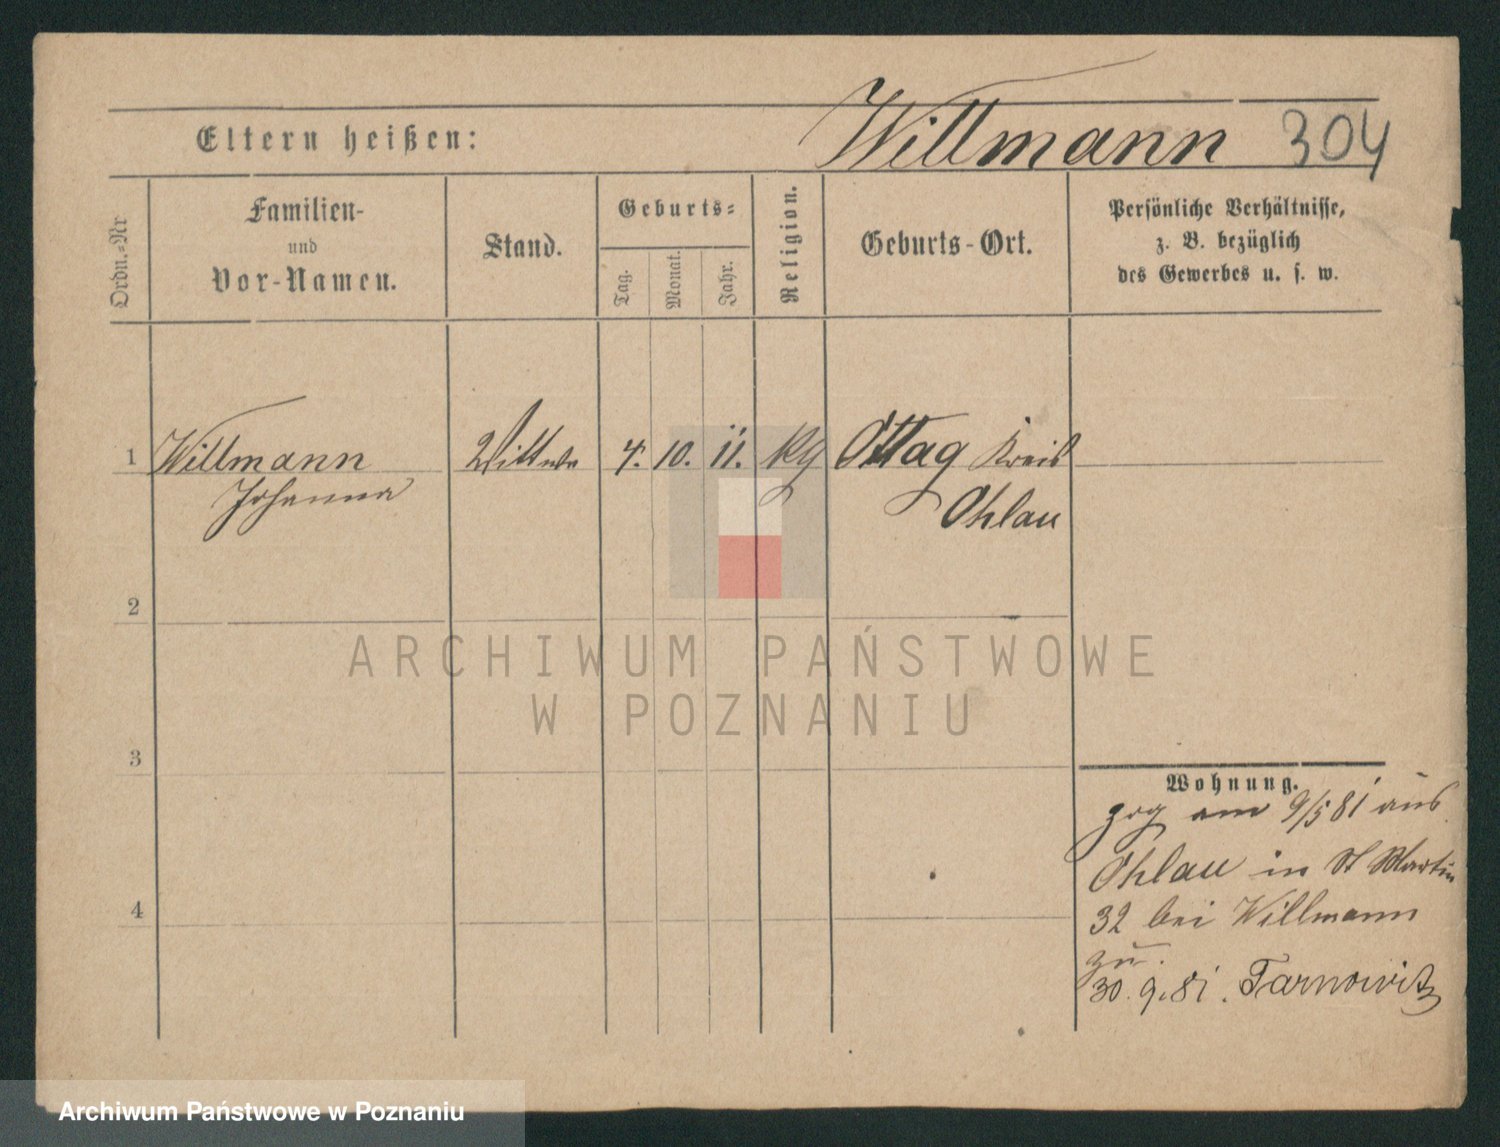 Willmann 304
Eltern heißen:
Ordn.-Nr
Familien-
und
Vor-Namen.
Stand.
Geburts-
Tag.
Monat.
Jahr.
Religion.
Geburts-Ort.
Persönliche Verhältnisse,
z. B. bezüglich
des Gewerbes u. s. w.
1 Willmann Wittwe 4. 10. 11. Ottag Kreis
Johanna Ohlau
2
3
4
Wohnung.
zog am 9/5 81 aus
Ohlau in St Martin
32 bei Willmann
zu.
30.9.81. Tarnowitz
ARCHIWUM PAŃSTWOWE
W POZNANIU
Archiwum Państwowe w Poznaniu